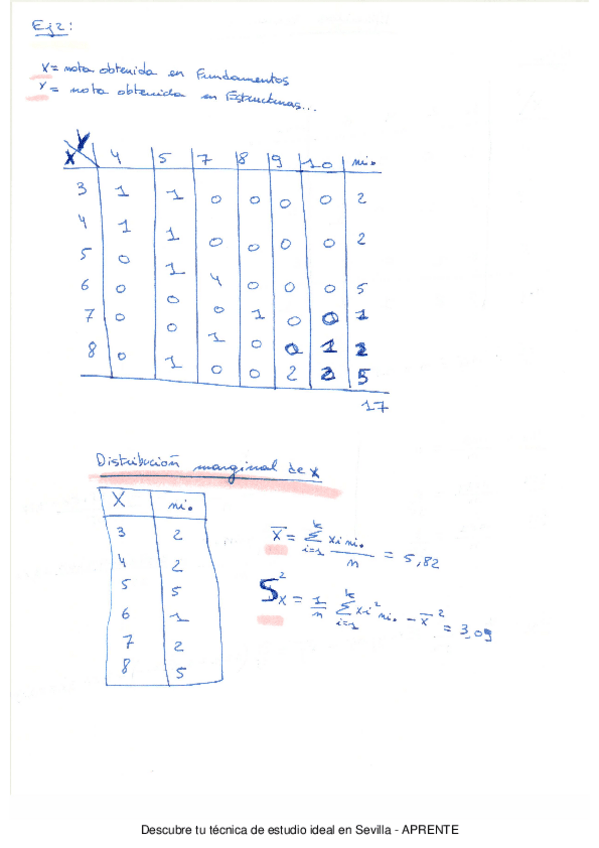 Ej 2:
X = nota obtenida en Fundamentos
Y = nota obtenida en Estructuras...
Y
X 4 5 7 8 9 10 ni.
3 1 1 0 0 0 0 2
4 1 1 0 0 0 0 2
5 0 1 4 0 0 0 5
6 0 0 0 1 0 0 1
7 0 0 1 0 0 1 2
8 0 1 0 0 2 2 5
17
Distribución marginal de x
X ni.
3 2
4 2
5 5
6 1
7 2
8 5
x̄ = Σ(i=1 → k) xi ni. / n = 5,82
S²x = 1/n Σ(i=1 → k) xi² ni. - x̄² = 3,09
Descubre tu técnica de estudio ideal en Sevilla - APRENTE